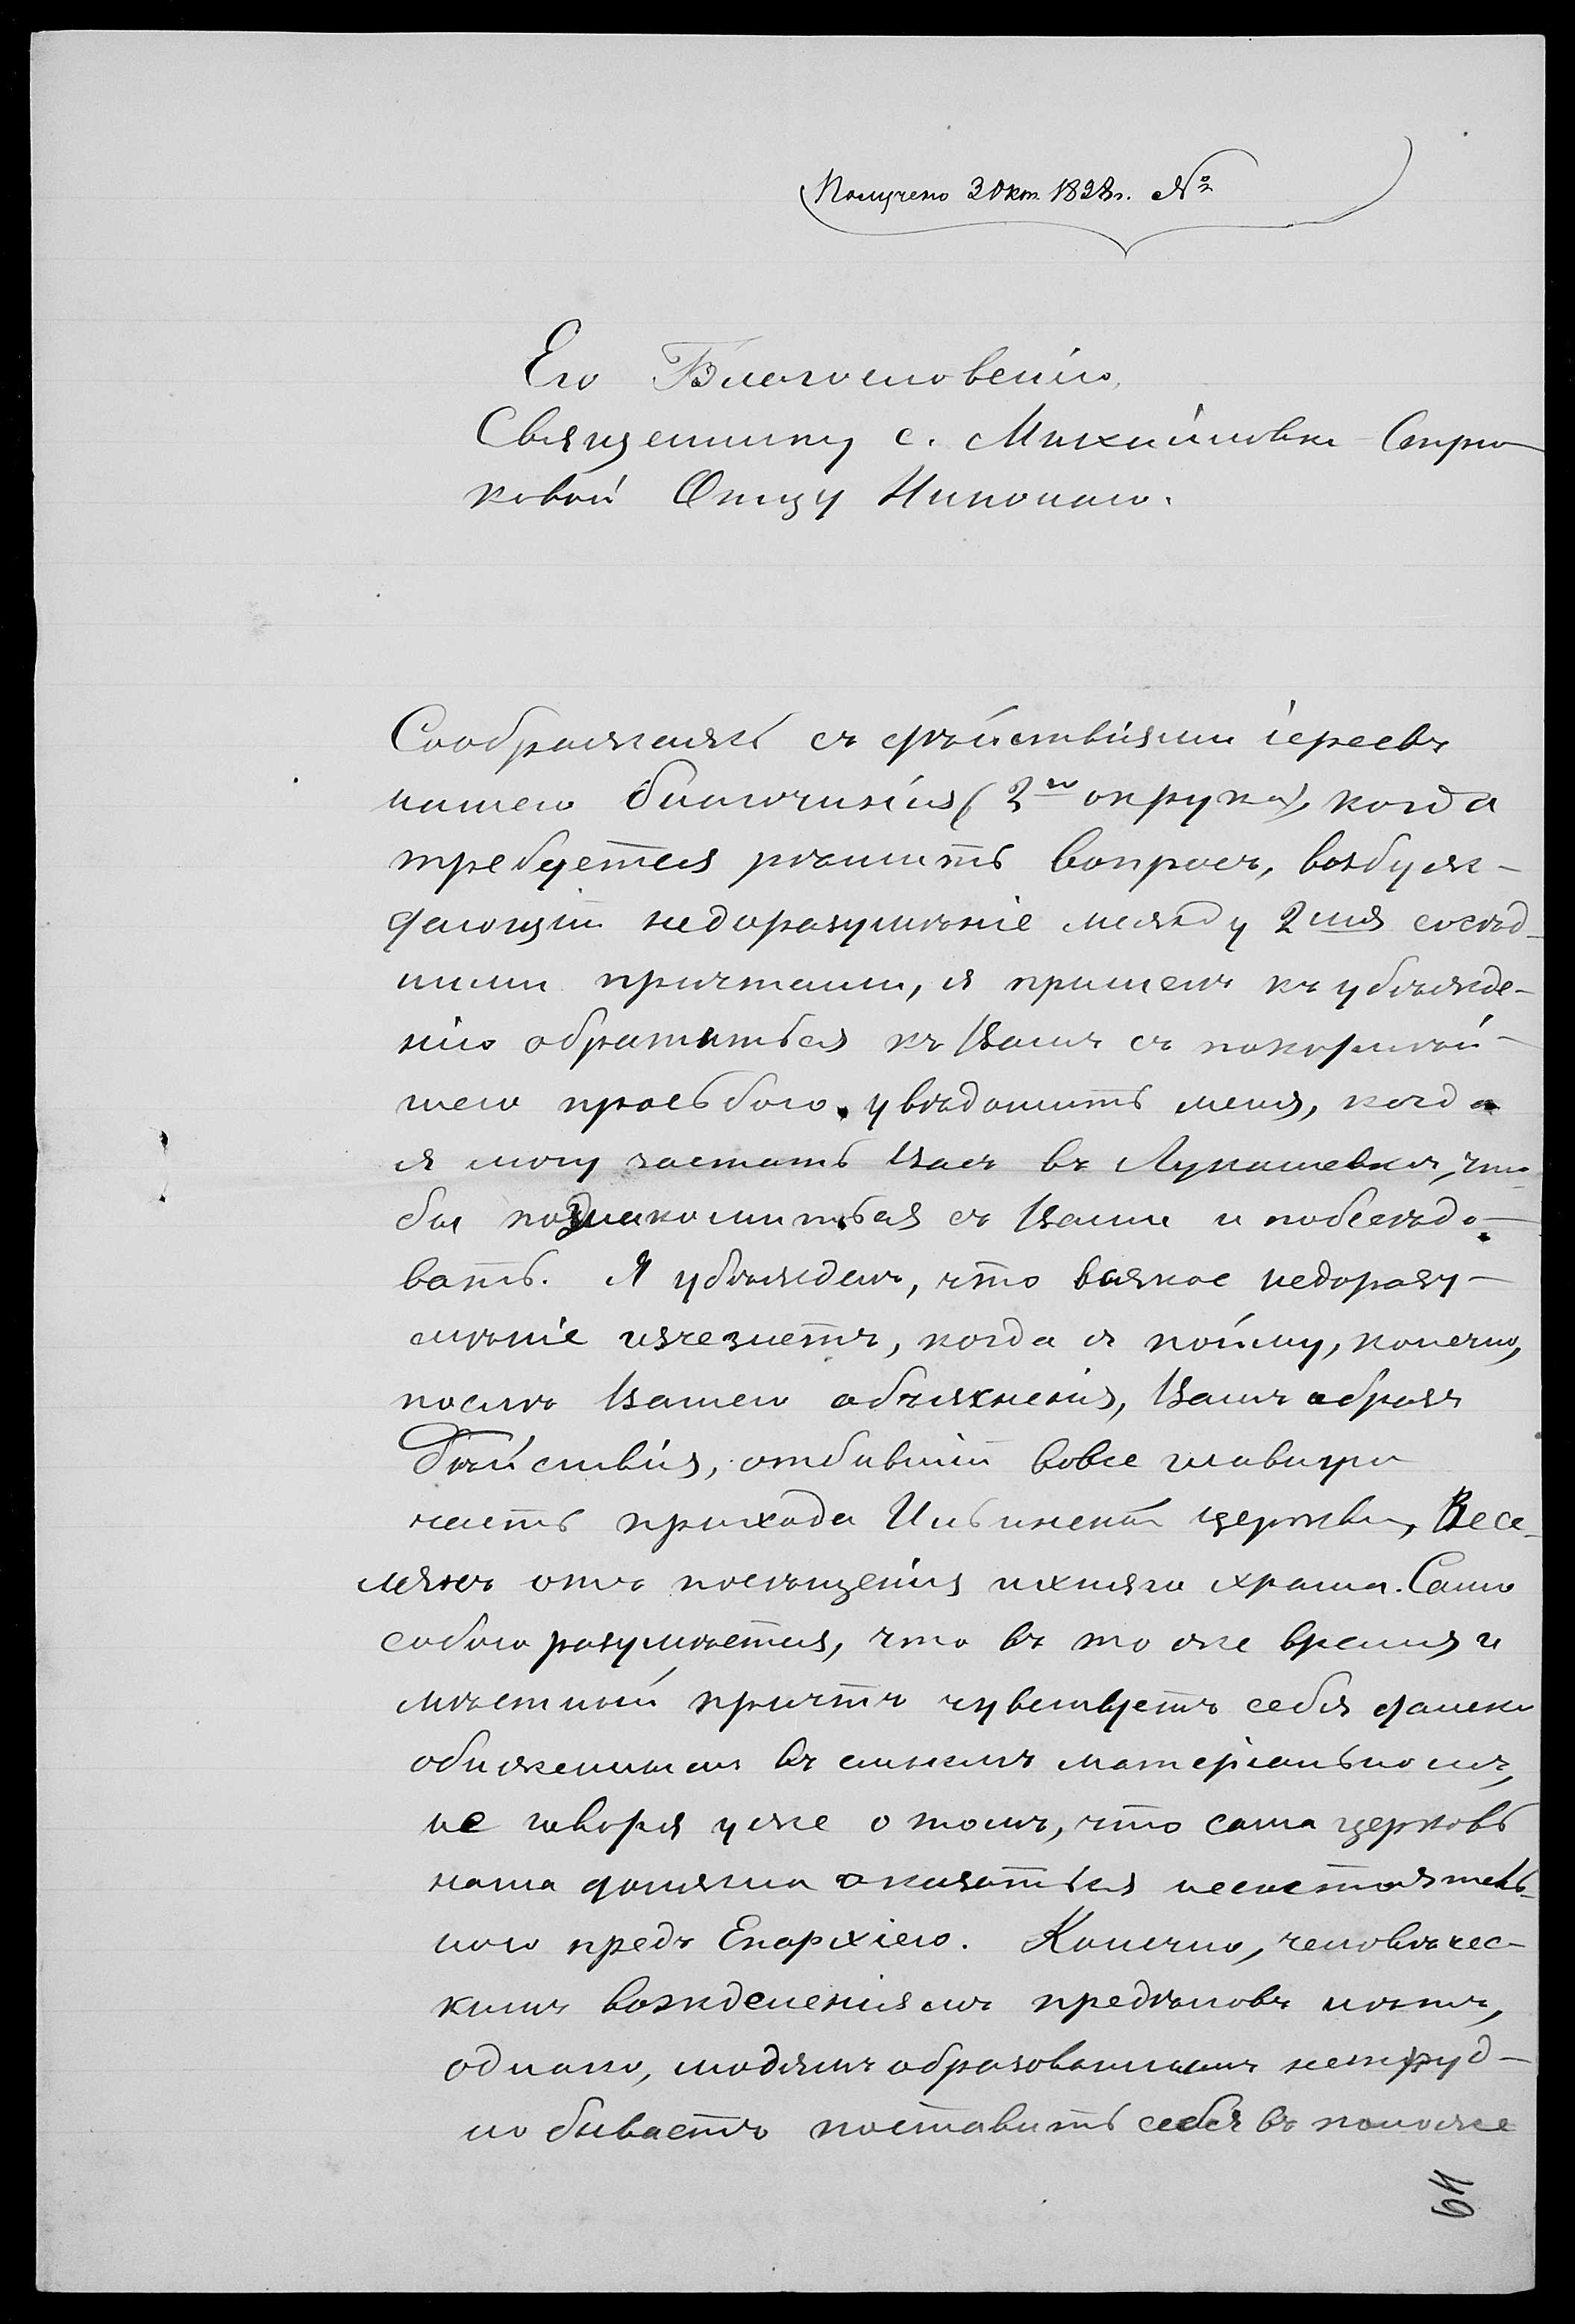 Получено 3 Окт. 1898 г. №
Его Благословенію,
Священнику с. Михайловки-Стрю-
ковой Отцу Николаю.
Соображаясь съ дѣйствіями іереевъ
нашего благочинія (2го округа), когда
требуется рѣшить вопросъ, возбуж-
дающій недоразумѣніе между 2мя сосѣд-
ними причтами, я пришелъ къ убѣжде-
нію обратиться къ Вамъ съ покорнѣй-
шею просьбою увѣдомить меня, когда
я могу застать Васъ въ Лукашевкѣ, что-
бы познакомиться съ Вами и побесѣдо-
вать. Я убѣжденъ, что всякое недоразу-
мѣніе изчезнетъ, когда я пойму, конечно,
послѣ Вашего объясненія, Вашъ образъ
дѣйствія, отбившій вовсе главную
часть прихода Ильинской церкви, Весе-
лянъ отъ посѣщенія ихняго храма. Само
собою разумѣется, что въ то же время и
мѣстный причтъ чувствуетъ себя далеко
обиженнымъ въ смыслѣ матеріальномъ,
не говоря уже о томъ, что сама церковь
наша должна оказаться несостоятель-
ною предъ Епархіею. Конечно, человѣчес-
кимъ вожделеніямъ предѣловъ нѣтъ,
однако, людямъ образованнымъ нетруд-
но бываетъ поставить себя въ положе
61